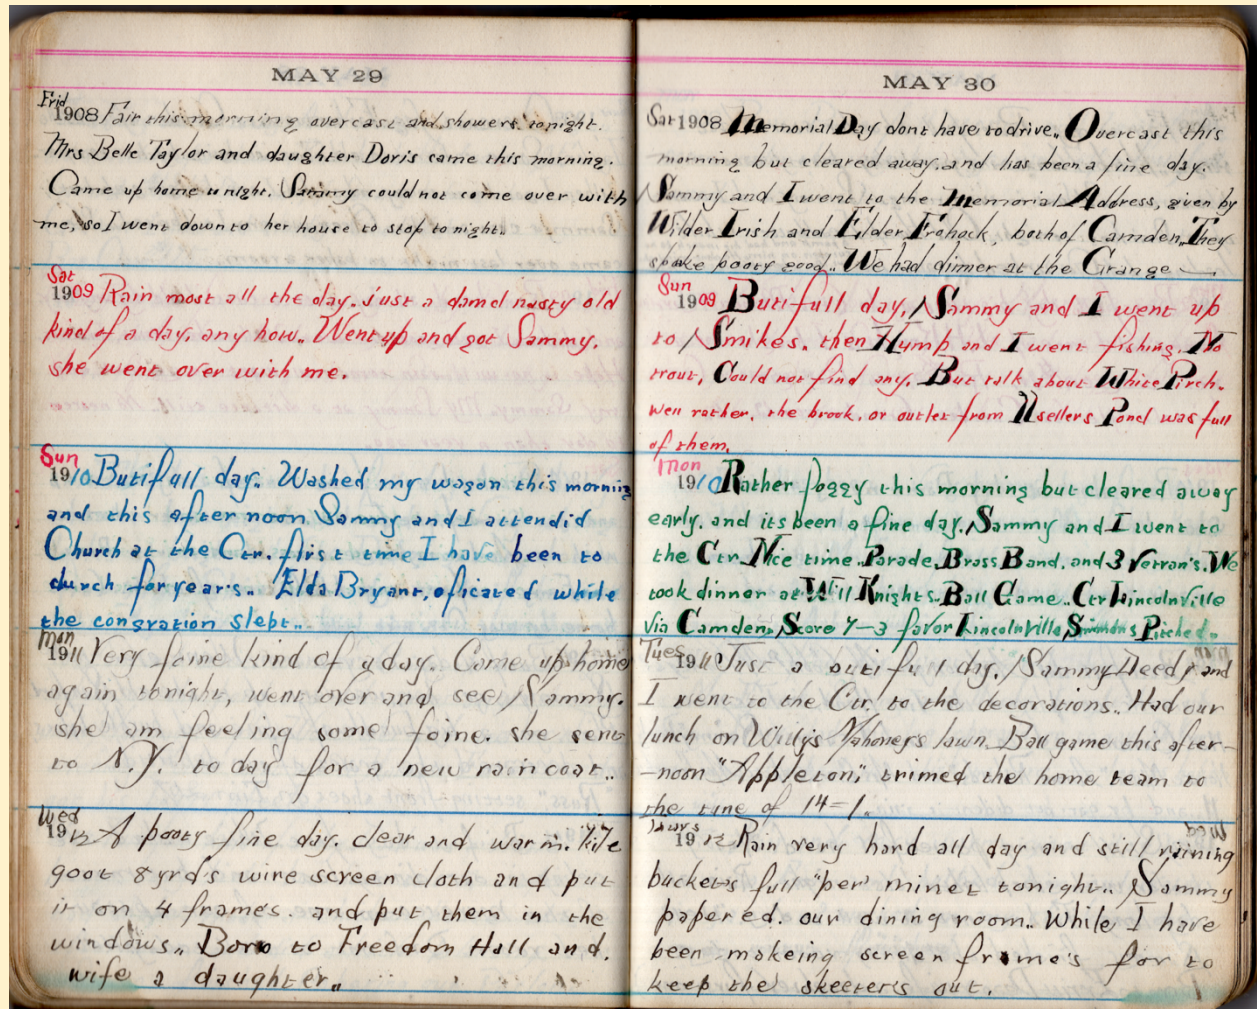 MAY 29
Frid
1908 Fair this morning overcast and showers tonight.
Mrs Belle Taylor and daughter Doris came this morning.
Came up home tonight. Sammy could not come over with
me, so I went down to her house to stop to night.
Sat
1909 Rain most all the day. just a damd nasty old
kind of a day, any how.. Went up and got Sammy.
she went over with me.
Sun
1910 Butifull day.. Washed my wagon this morning
and this after noon Sammy and I attendid
Church at the Ctr. flirst time I have been to
church for years.. Elda Bryant, oficated while
the congration slept..
Mon
1911 Very foine kind of a day. Came up home
again tonight, went over and see Sammy.
she am feeling some foine. she sent
to N.Y. to day for a new raincoat..
Wed
1912 A pooty fine day. clear and warm.
goot 8 yrd's wire screen cloth and put
it on 4 frames. and put them in the
windows.. Born to Freedom Hall and.
wife a daughter..
MAY 30
Sat 1908 Memorial Day dont have to drive.. Overcast this
morning but cleared away. and has been a fine day.
Sammy and I went to the Memorial Address, given by
Wilder Irish and Elder Frohock, both of Camden.. They
spoke pooty good.. We had dinner at the Grange
Sun
1909 Butifull day, Sammy and I went up
to Smikes. then Hump and I went fishing. No
trout, Could not find any. But talk about White Pirch.
well rather. the brook, or outlet from Ussellers Pond was full
of them.
Mon
1910 Rather foggy this morning but cleared away
early. and its been a fine day. Sammy and I went to
the Ctr. Nice time. Parade, Brass Band, and 3 Vetran's. We
took dinner at Will Knights. Ball Game.. Ctr Lincolnville
via Camden. Score 7-3 favor Lincolnville, Simmons Pitched.
Tues
1911 Just a butiful day. Sammy and
I went to the Ctr. to the decorations.. Had our
lunch on lawn. Ball game this after-
-noon "Appleton," trimed the home team to
the tune of 14=1.
Thurs
Wed
1912 Rain very hard all day and still raining
bucket's full "per" minet tonight.. Sammy
papered. our dining room.. While I have
been makeing screen frame's for to
keep the skeeter's out.